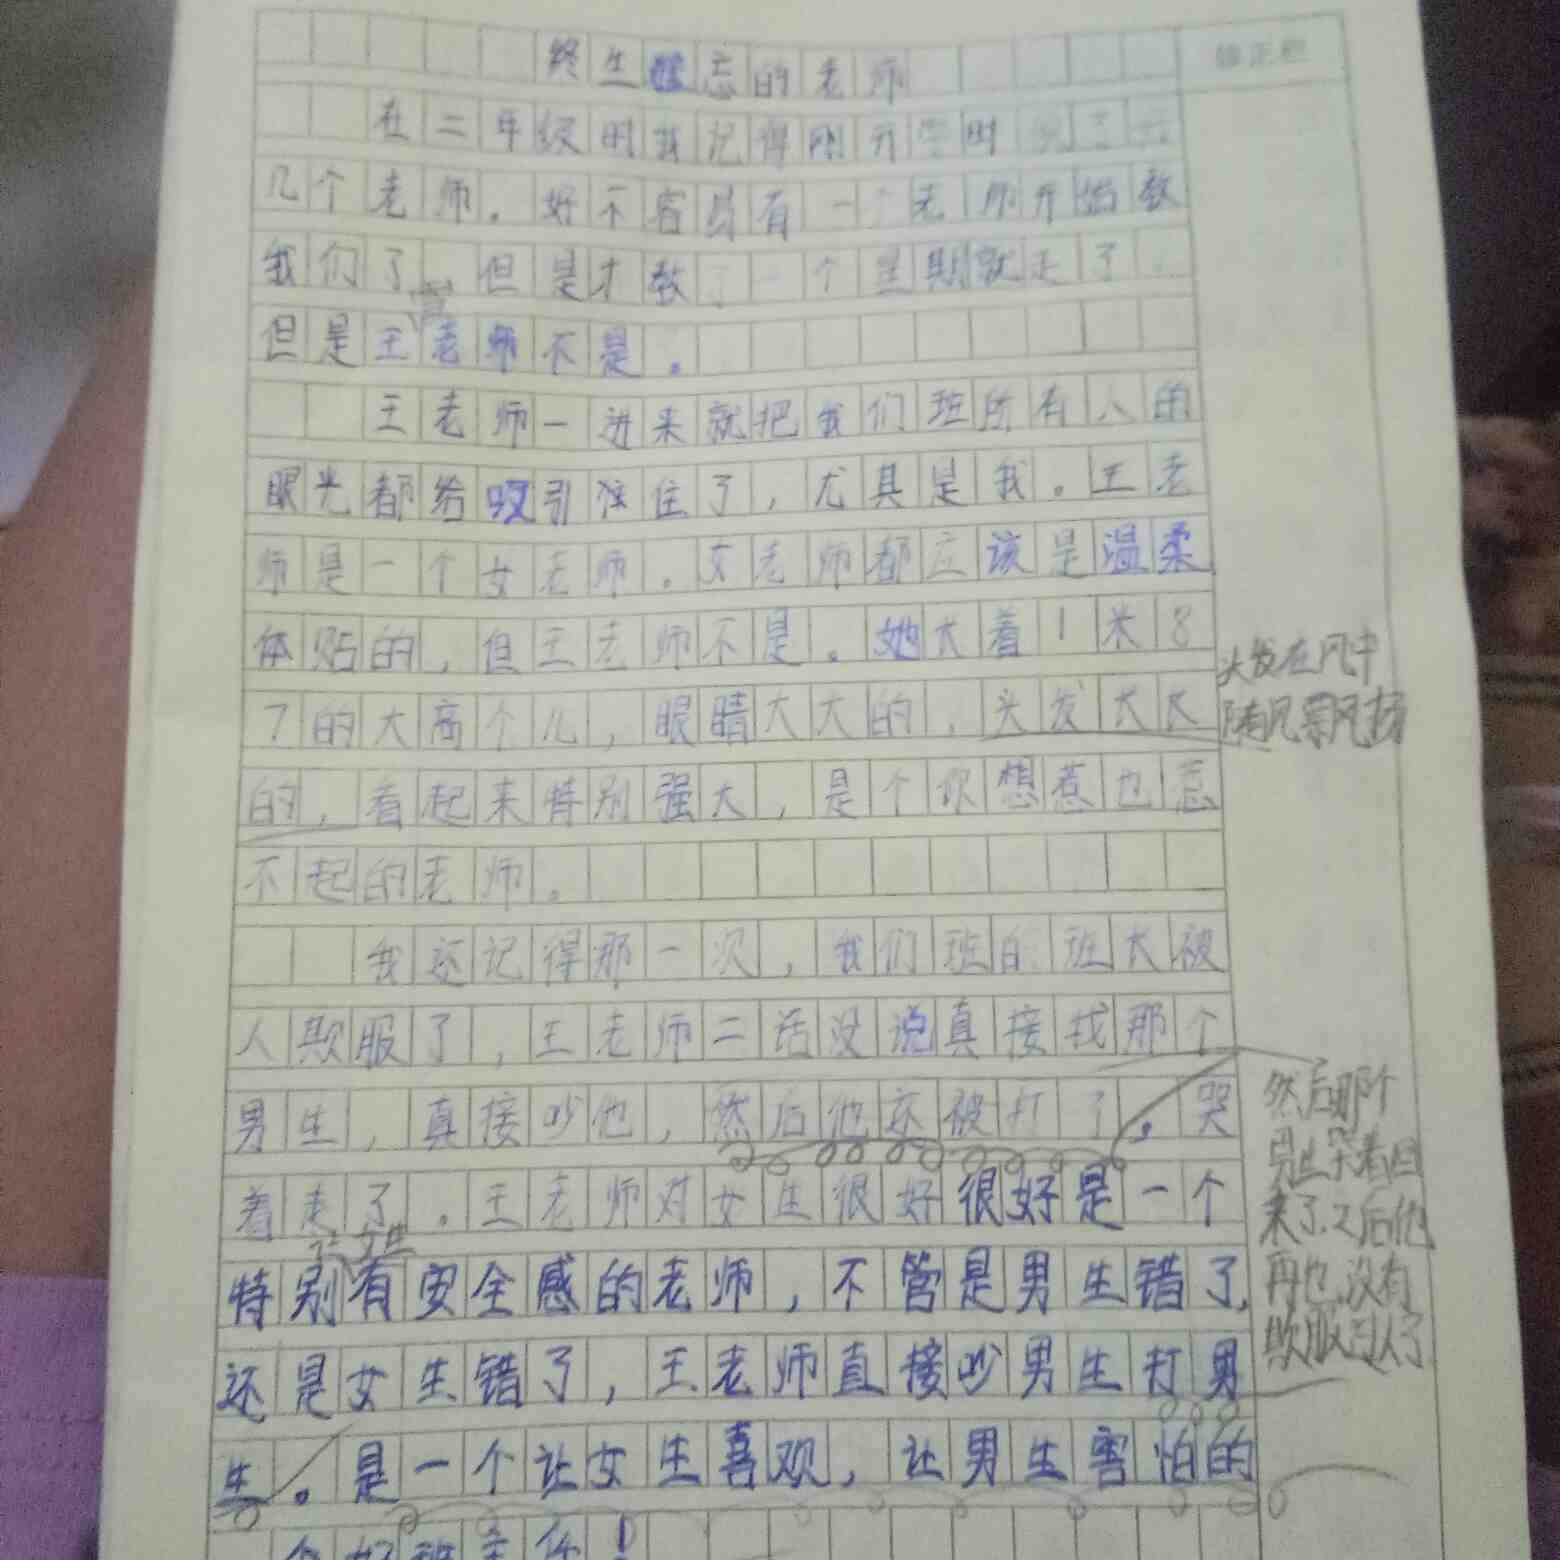 终生难忘的老师
修正栏
在二年级时我记得刚开学时
几个老师。好不容易有一个老师开始教
我们了,但是才教了一个星期就走了.
但是王老师不是。
王老师一进来就把我们班所有人的
眼光都给吸引住住了,尤其是我。王老
师是一个女老师。女老师都应该是温柔
体贴的,但王老师不是。她大着1米8
7的大高个儿,眼睛大大的,头发长长
的,看起来特别强大,是个你想惹也惹
不起的老师。
头发在风中
随风飘扬
我还记得那一次,我们班的班长被
人欺服了,王老师二话没说真接找那个
男生,真接吵他,然后他还被打了。哭
着走了。王老师对女生很好很好是一个
女生
特别有安全感的老师,不管是男生错了,
还是女生错了,王老师直接吵男生打男
生。是一个让女生喜欢,让男生害怕的
个好班主任!
然后那个
男生哭着回
来了.之后他
再也没有
欺服过人了